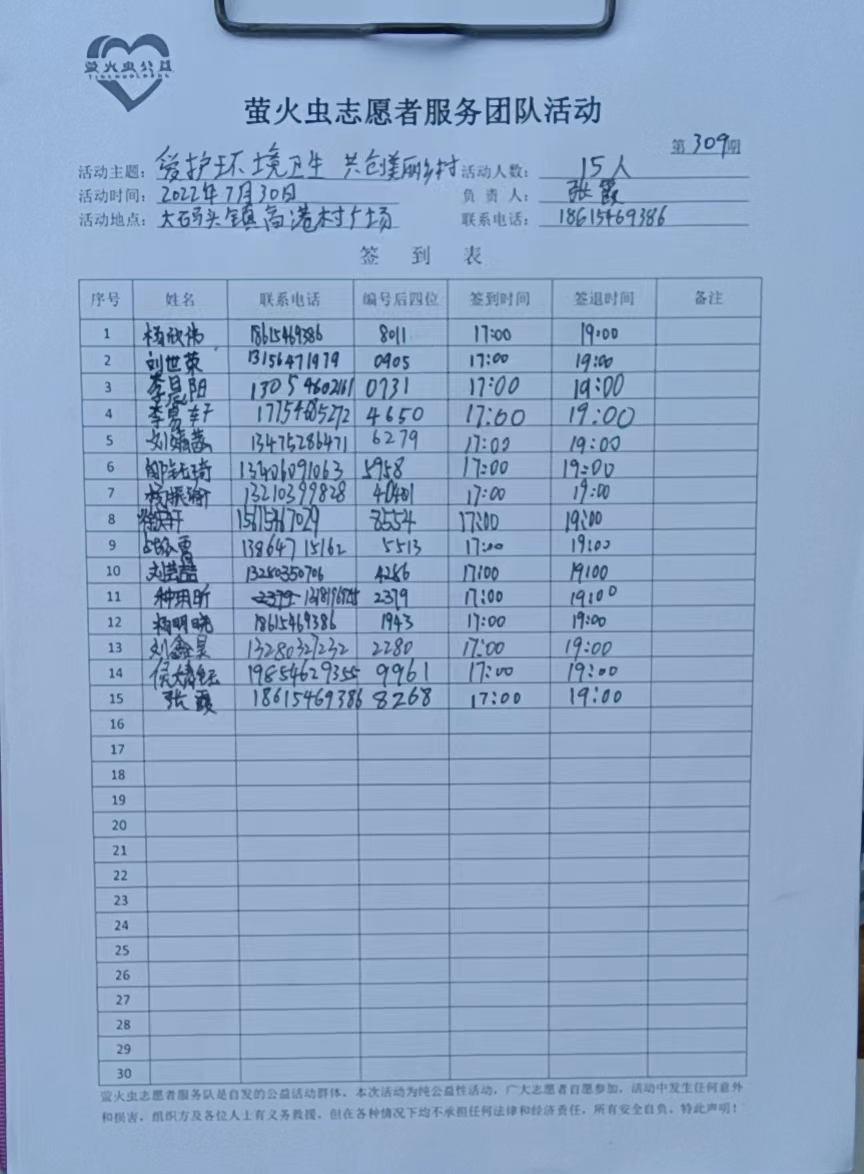 萤火虫公益
萤火虫志愿者服务团队活动
第309期
活动主题：爱护环境卫生 共创美丽乡村 活动人数：15人
活动时间：2022年7月30日 负责人：张霞
活动地点：大码头镇高港村广场 联系电话：18615469386
签到表
序号 姓名 联系电话 编号后四位 签到时间 签退时间 备注
1 杨欣伟 18615469386 8011 17:00 19:00
2 刘世荣 13156471979 0905 17:00 19:00
3 13054602161 0731 17:00 19:00
4 17754685272 4650 17:00 19:00
5 13475286471 6279 17:00 19:00
6 13406091063 5958 17:00 19:00
7 杨振瀚 13210399828 17:00 19:00
8 8554 17:00 19:00
9 13864715162 5513 17:00 19:00
10 13280350706 4286 17:00 19:00
11 2379 17:00 19:00
12 杨明晓 18615469386 1943 17:00 19:00
13 刘鑫昊 13280327232 2280 17:00 19:00
14 19854629355 9961 17:00 19:00
15 张霞 18615469386 8268 17:00 19:00
16
17
18
19
20
21
22
23
24
25
26
27
28
29
30
萤火虫志愿者服务队是自发的公益活动群体，本次活动为纯公益性活动，广大志愿者自愿参加，活动中发生任何意外
和损害，组织方及各位人士有义务救援，但在各种情况下均不承担任何法律和经济责任，所有安全自负，特此声明！